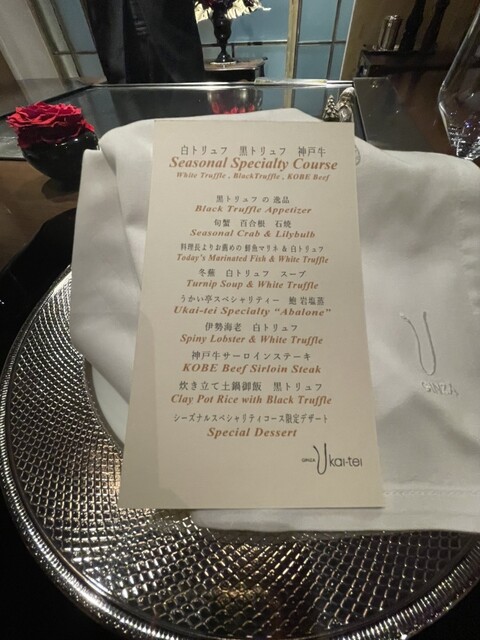 白トリュフ 黒トリュフ 神戸牛
Seasonal Specialty Course
White Truffle , BlackTruffle , KOBE Beef
黒トリュフ の 逸品
Black Truffle Appetizer
旬蟹 百合根 石焼
Seasonal Crab & Lilybulb
料理長よりお薦めの 鮮魚マリネ & 白トリュフ
Today's Marinated Fish & White Truffle
冬蕪 白トリュフ スープ
Turnip Soup & White Truffle
うかい亭スペシャリティー 鮑 岩塩蒸
Ukai-tei Specialty "Abalone"
伊勢海老 白トリュフ
Spiny Lobster & White Truffle
神戸牛サーロインステーキ
KOBE Beef Sirloin Steak
炊き立て土鍋御飯 黒トリュフ
Clay Pot Rice with Black Truffle
シーズナルスペシャリティコース限定デザート
Special Dessert
GINZA Ukai-tei
U
GINZA